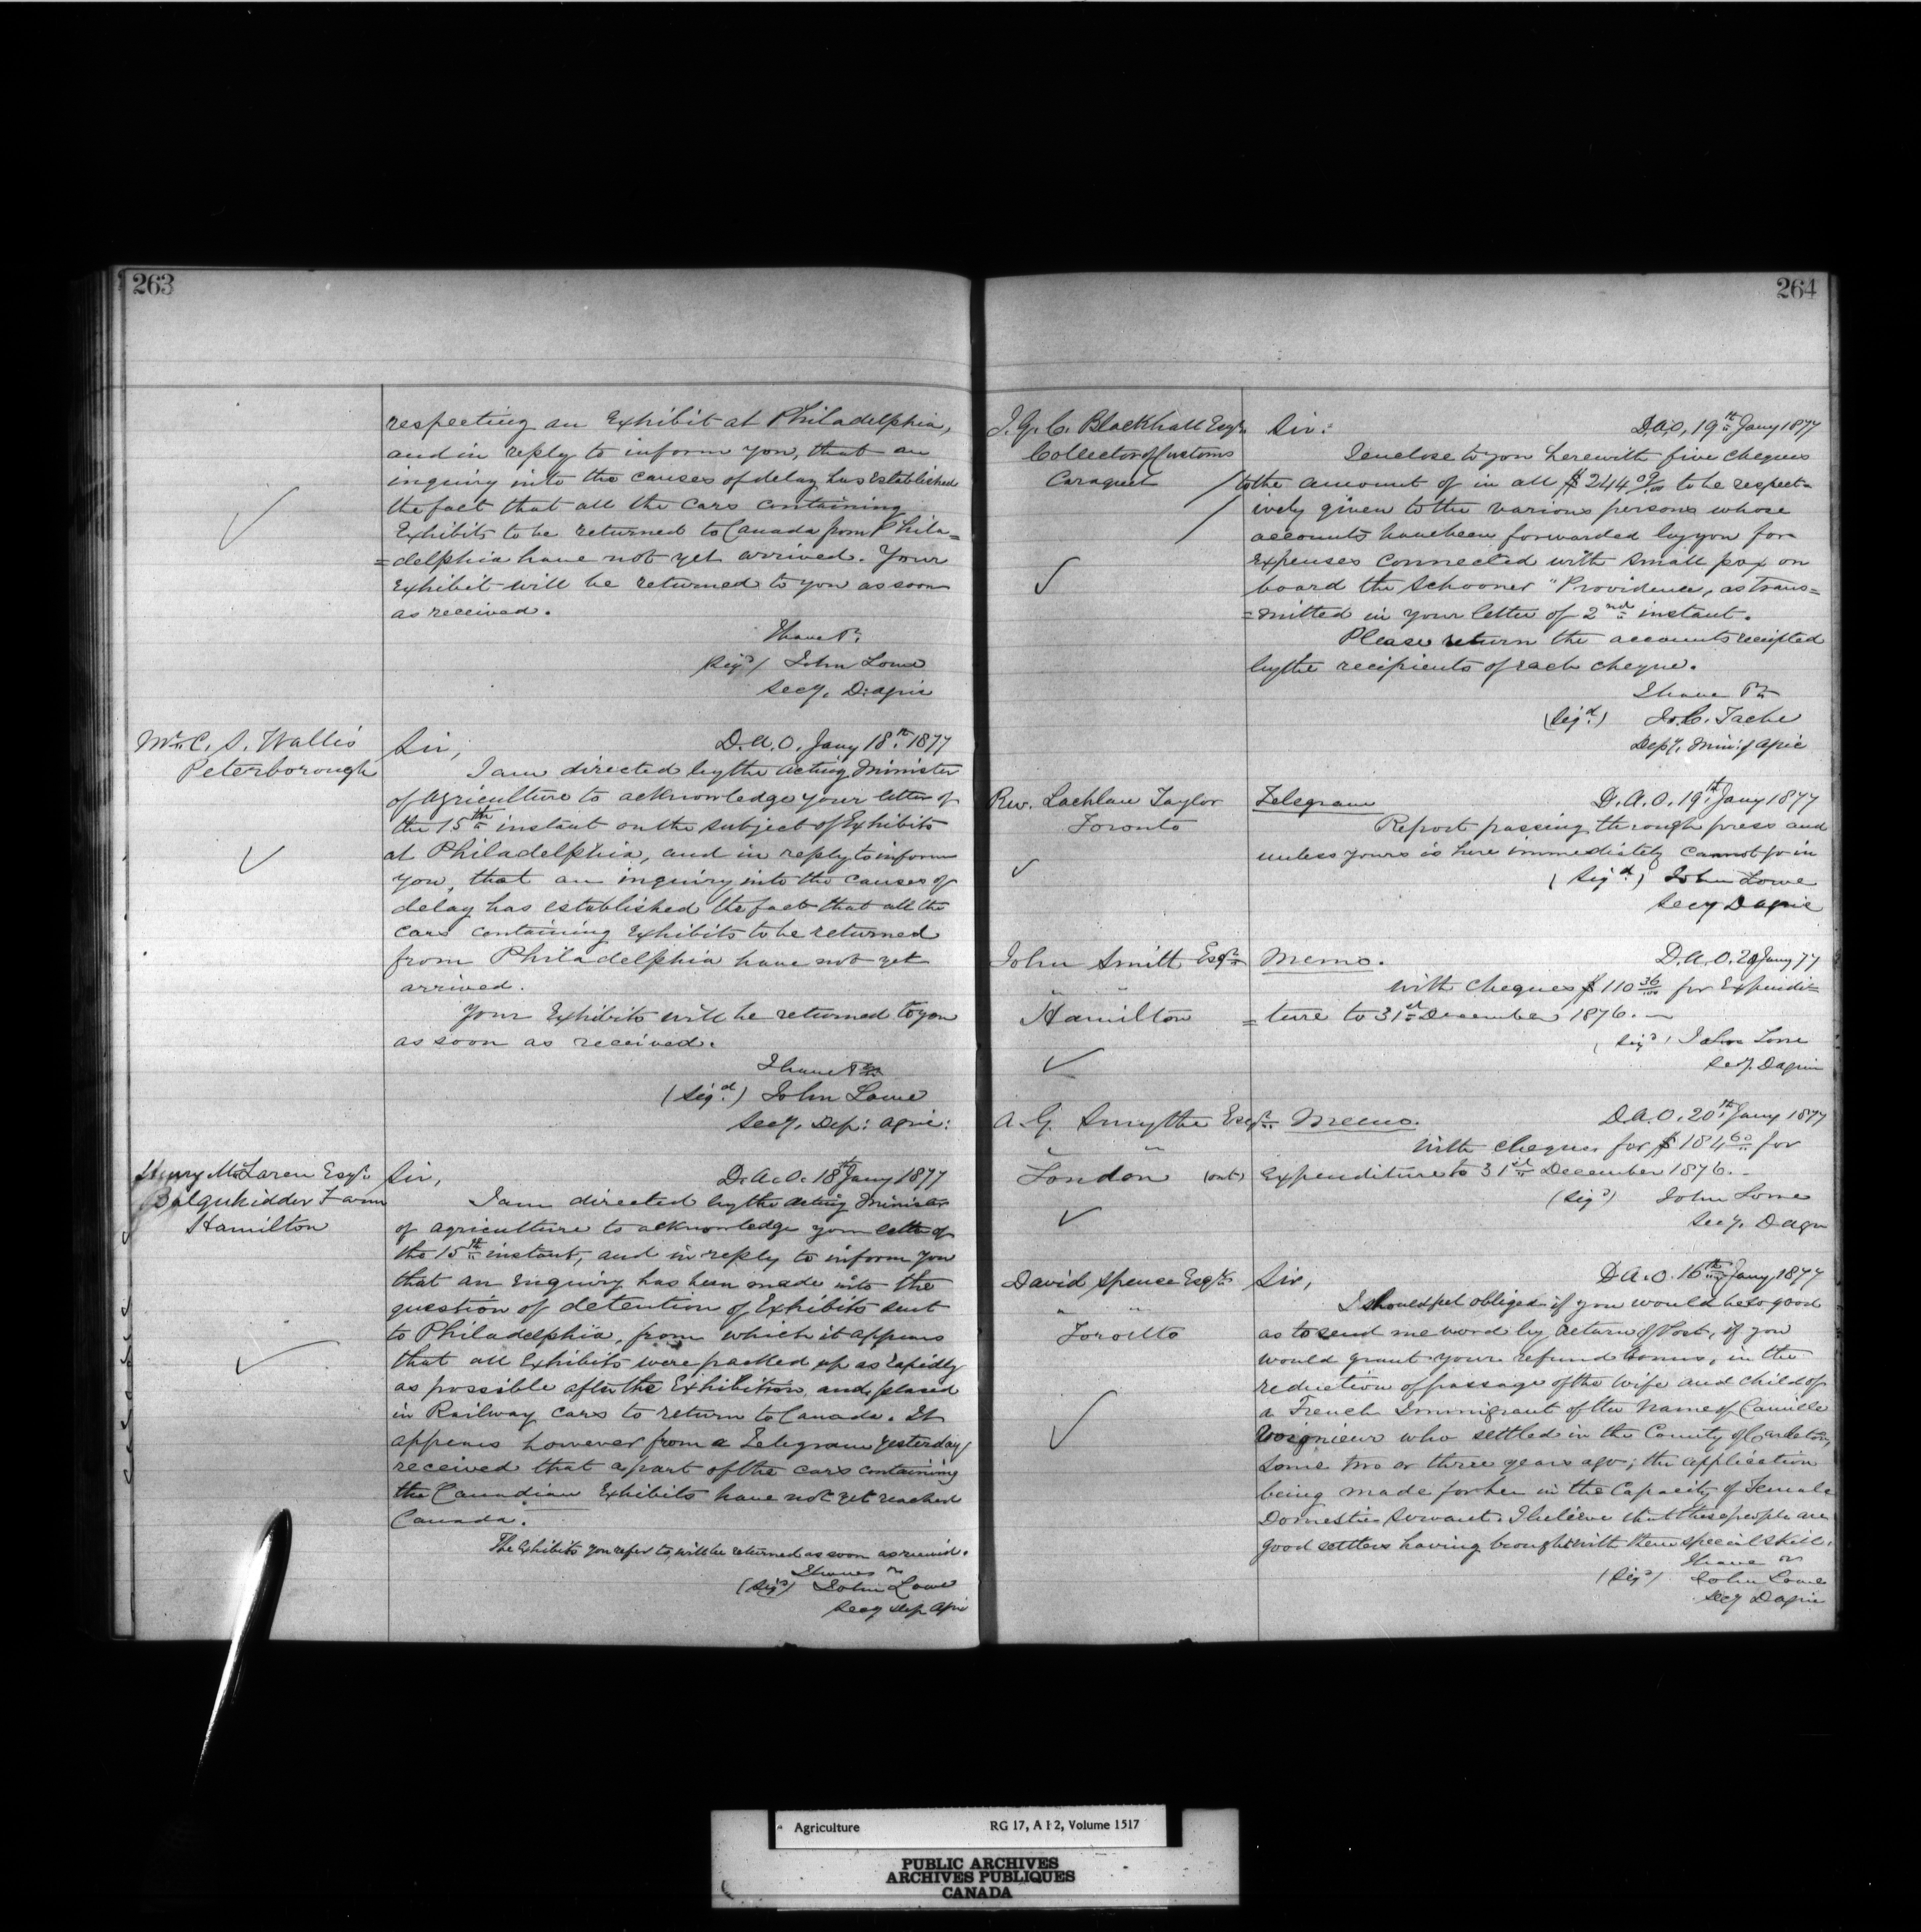 263
respecting an Exhibit at Philadelphia,
and in reply to inform you, that an
inquiry into the causes of delay has established
the fact that all the Cars containing
Exhibits to be returned to Canada from Phila=
=delphia have not yet arrived. Your
Exhibit will be returned to you as soon
as received.
I have &c
Sigd) John Lowe
Secy. D: Agric
Mr C. S. Wallis
Peterborough
Sir,
D.A.O. Jany 18th 1877
I am directed by the Acting Minister
of Agriculture to acknowledge your letter of
the 15th instant on the subject of Exhibits
at Philadelphia, and in reply to inform
you, that an inquiry into the causes of
delay has established the fact that all the
Cars containing Exhibits to be returned
from Philadelphia have not yet
arrived.
Your Exhibits will be returned to you
as soon as received.
I have &c
(Sigd.) John Lowe
Secy. Dep: Agric:
Henry McLaren Esqr
Balquhidder Farm
Hamilton
Sir,
D.A.O. 18th Jany 1877
I am directed by the Acting Minister
of Agriculture to acknowledge your letter of
the 15th instant, and in reply to inform you
that an Enquiry has been made into the
question of detention of Exhibits sent
to Philadelphia, from which it appears
that all Exhibits were packed up as rapidly
as possible after the Exhibition and placed
in Railway Cars to return to Canada. It
appears however from a Telegram yesterday
received that a part of the cars containing
the Canadian Exhibits have not yet reached
Canada.
The Exhibits you refer to, will be returned as soon as received.
I have &c
(Sigd) John Lowe
Secy Dep Agri
264
J. G. C. Blackhall Esqr
Collector of Customs
Caraquet
Sir:
D.A.O, 19th Jany 1877
I enclose to you herewith five cheques
to the amount of in all $244 09/100 to be respect=
ively given to the various persons whose
accounts have been forwarded by you for
expenses connected with small pox on
board the Schooner "Providence, as trans=
=mitted in your letter of 2nd instant.
Please return the accounts receipted
by the recipients of each cheque.
I have &c
(Sigd.) J. C. Tache
Depy. Min: of Agric
Rev. Lachlan Taylor
Toronto
Telegram
D.A.O. 19th Jany 1877
Report passing through press and
unless yours is here immediately cannot go in
(Sigd.) John Lowe
Secy D Agric
John Smith Esqr
" "
Hamilton
Memo.
D.A.O. 20 Jany 77
With Cheques $110 36/100 for Expendi=
=ture to 31st December 1876.
(Sigd) John Lowe
Secy. D Agric
A. G. Smythe Esqr
" "
London (Ont)
Memo.
D.A.O. 20th Jany 1877
With cheques for $184 60 for
Expenditure to 31st December 1876.
(Sigd) John Lowe
Secy. D Agr
David Spence Esqr
" "
Toronto
Sir,
D.A.O. 16th Jany, 1877
I should feel obliged if you would be so good
as to send me word by return of Post, if you
would grant your refund bonus, in the
reduction of passage of the wife and child of
a French Immigrant of the name of Camille
who settled in the County of Carleton,
some two or three years ago; the application
being made for her in the Capacity of Female
Domestic Servant. I believe that these people are
good settlers having brought with them special skill.
I have &c
(Sigd) John Lowe
Secy D Agric
Agriculture RG 17, A I 2, Volume 1517
PUBLIC ARCHIVES
ARCHIVES PUBLIQUES
CANADA